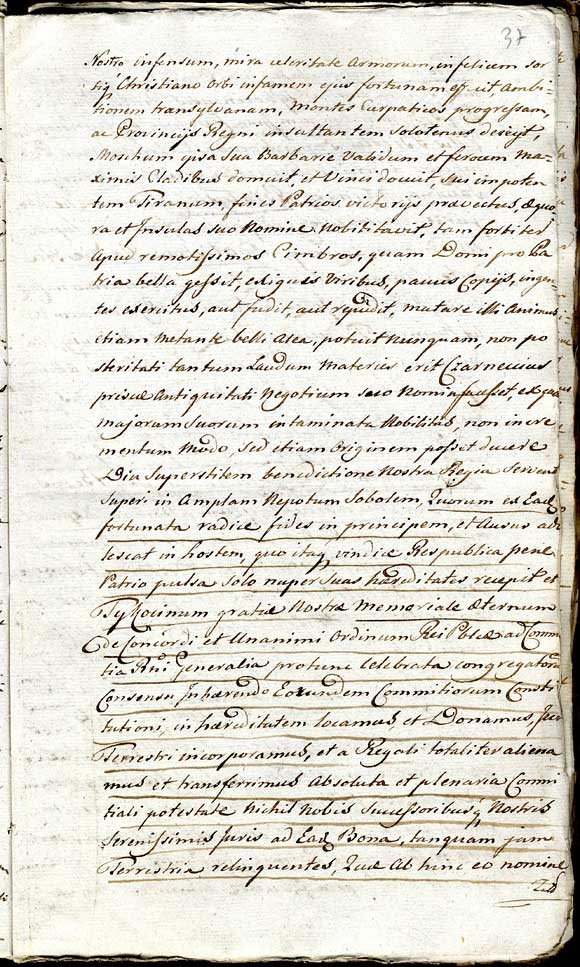 37
Nostro infensum, mira celeritate Armorum, infelicem sor
tiq Christiano Orbi infamem ejus fortunam effecit, Ambi-
tionem transylvanam, Montes Carpaticos progressam,
ac Provincijs Regni insultantem solotenus dejecit,
Moschum ipsa Sua Barbarie validum et ferocem Ma-
ximis Cladibus domuit, et Vinci docuit, sui impoten
tem Tiranum, fines Patrios victorijs prævectus, æquo
ra et Insulas suo Nomine Nobilitavit, tam fortiter
Apud remotissimos Cimbros, quam Domi pro Pa
tria bella gessit, exiguis Viribus, paucis Copijs, ingen-
tes exercitus, aut fudit, aut repulit, mutare illi Animus
etiam Metante belli Alea, potuit nunquam, non po
steritati tantum Laudum Materies erit Czarnecius
priscæ Antiquitati Negotium suo Nomine, ex qua
majorum Suorum intaminata Nobilitas, non incre
mentum Modo, sed etiam Originem possit ducere
Diu Superstitem benedictione Nostra Regia
Super in Amplam Nepotum Sobolem, Quorum ex Eadē
fortunata radice fides in principem, et Ausus ado
lescat in hostem, quo itaq vindice Respublica pene
Patrio pulsa Solo nuper Suas hæreditates recepit et
Tykocinum gratiæ Nostræ Memoriale Æternum
de Concordi et Unanimi Ordinum Rei Pblcæ ad Commi
tia Rni Generalia protunc Celebrata congregatorū
Consensu Inhærendo Eorundem Commitiorum Consti
tutioni, in hæreditatem locamus et Donamus, Juri
Terrestri incorporamus, et a Regali totaliter aliena
mus et transferrimus Absoluta et plenaria Commi
tiali potestate Nichil Nobis Successoribusq Nostris
Serenissimis Juris ad Eadē Bona, tanquam jam
Terrestria relinquentes, Quæ Ab hinc eo nomine